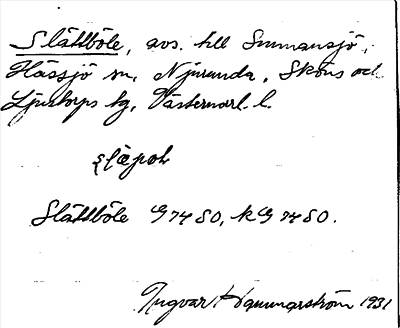 Slättböle, avs. till Summansjö,
Hässjö sn, Njurunda, Sköns och
Ljustorps tg, Västernorl. l.
Slättböle G 74 80, k G 74 80.
Ingvar Hammarström 1931